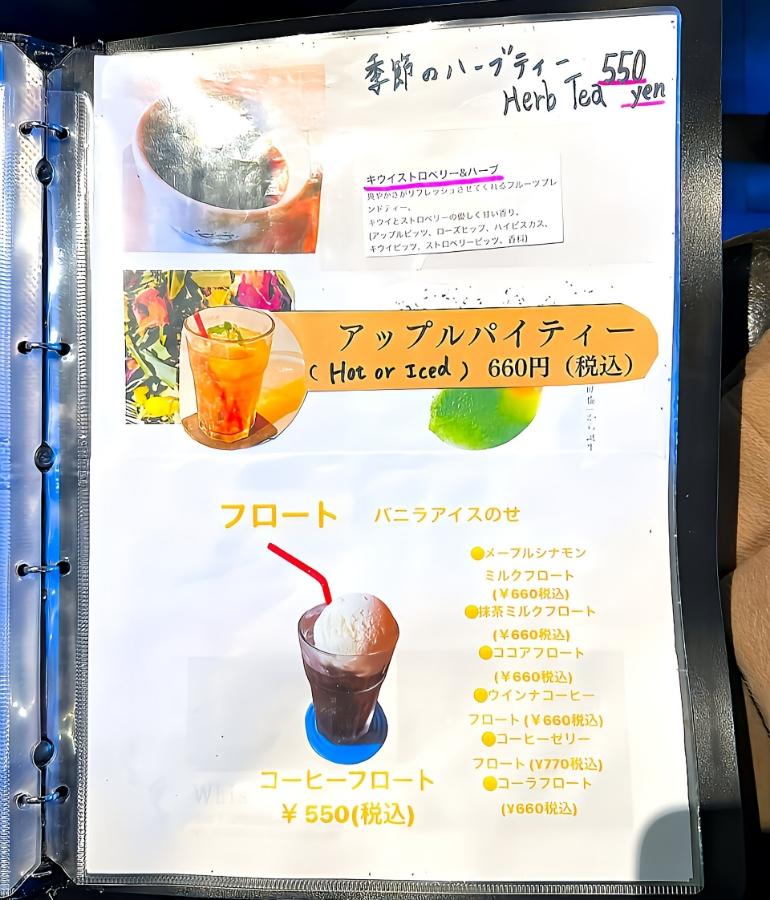 季節のハーブティー 550
Herb Tea yen
キウイストロベリー&ハーブ
爽やかさがリフレッシュさせてくれるフルーツブレ
ンドティー。
キウイとストロベリーの優しく甘い香り。
(アップルピッツ、ローズヒップ、ハイビスカス、
キウイピッツ、ストロベリーピッツ、香料)
アップルパイティー
(Hot or Iced) 660円（税込）
フロート バニラアイスのせ
メープルシナモン
ミルクフロート
(¥660税込)
抹茶ミルクフロート
(¥660税込)
ココアフロート
(¥660税込)
ウインナコーヒー
フロート(¥660税込)
コーヒーゼリー
フロート(¥770税込)
コーラフロート
(¥660税込)
コーヒーフロート
¥550(税込)